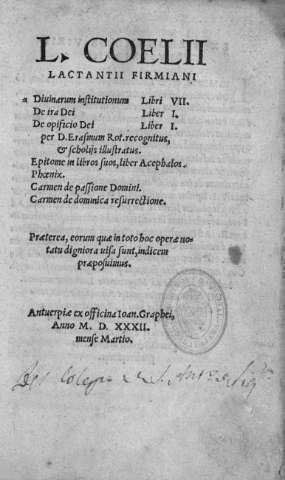 L. COELII
LACTANTII FIRMIANI
Diuinarum institutionum Libri VII.
De ira Dei Liber I.
De opificio Dei Liber I.
per D. Erasmum Rot. recognitus,
& scholijs illustratus.
Epitome in libros suos, liber Acephalos.
Phœnix.
Carmen de passione Domini.
Carmen de dominica resurrectione.
Præterea, eorum quæ in toto hoc opere no-
tatu digniora uisa sunt, indicem
præposuimus.
Antuerpiæ ex officina Ioan. Graphei,
Anno M. D. XXXII.
mense Martio.